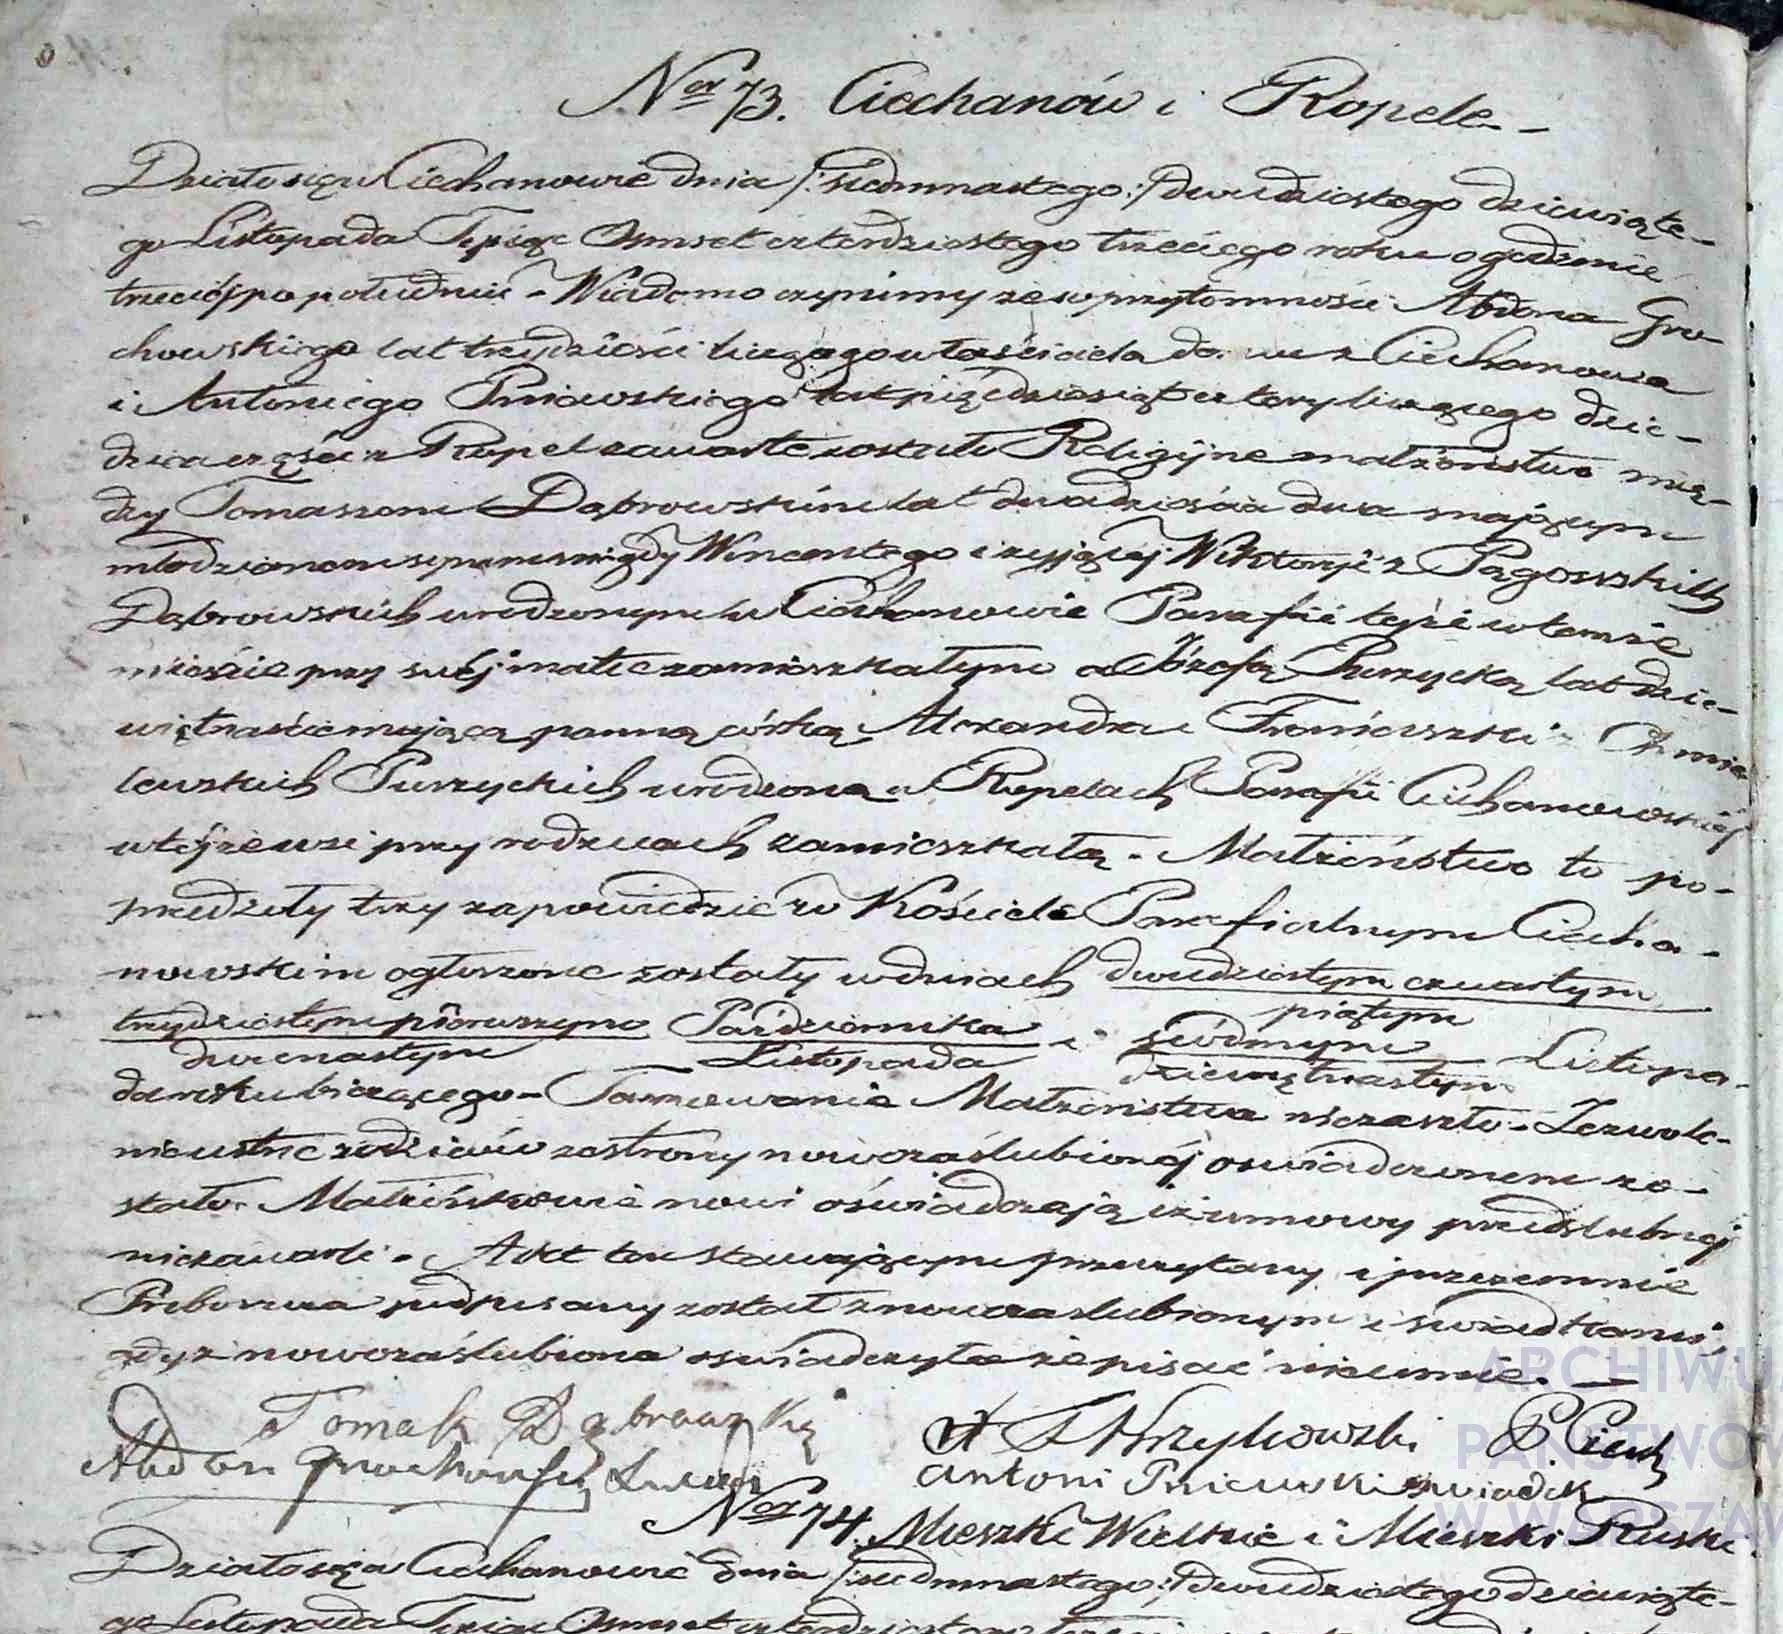 Nr 73. Ciechanów i Ropele
Działo się w Ciechanowie dnia /:siedmnastego:/ dwudziestego dziewiąte-
go Listopada Tysiąc Osmset czterdziestego trzeciego roku o godzinie
trzeciéj po południu - Wiadomo czynimy że w przytomności Abdona Gro-
chowskiego lat trzydzieści liczącego właściciela domu z Ciechanowa
i Antoniego Pniewskiego lat pięćdziesiąt cztery liczącego dzie-
dzica części z Ropel zawarte zostało Religijne małżeństwo mię-
dzy Tomaszem Dąbrowskim lat dwadzieścia dwa mającym
młodzianem synem niegdy Wincentego i żyjącej Wiktoryi z Pągowskich
Dąbrowskich urodzonym w Ciechanowie Parafii tejże w temże
mieście przy swéj matce zamieszkałym a Józefą Purzycką lat dzie-
więtnaście mającą panną córką Alexandra i Franciszki z Chmie
lewskich Purzyckich urodzoną w Ropelach Parafii Ciechanowskiéj
w téjże wsi przy rodzicach zamieszkałą. Małżeństwo to po-
przedziły trzy zapowiedzie w Kościele Parafialnym Ciecha-
nowskim ogłoszone zostały w dniach dwudziestym czwartym
piątym
trzydziestym pierwszym Października i siódmym Listopa-
dwunastym Listopada dziewiętnastym
da roku bieżącego - Tamowanie Małżeństwa nie zaszło - Zezwole-
nie ustne rodziców ze strony nowozaślubionéj oswiadczonem zo-
stało. Małżonkowie nowi oświadczają iż umowy przedślubnej
nie zawarli - Akt ten stawającym przeczytany i przezemnie
Proboszcza podpisany został z nowozaslubionym i swiadkami,
gdyż nowozaślubiona oswiadczyła że pisać nieumie. -
Tomasz Dąbrowski
X. F Wrzykowski P. Ciech
Abdon Grochowski swiad
Antoni Pniewski swiadek
Nr 74. Mieszki Wielkie i Mieszki Ruski.
Działo się w Ciechanowie dnia /:siedmnastego:/ dwudziestego dziewiąte-
go Listopada Tysiąc Osmset czterdziestego trzeciego
ARCHIWU
PAŃSTWOW
W WARSZAW